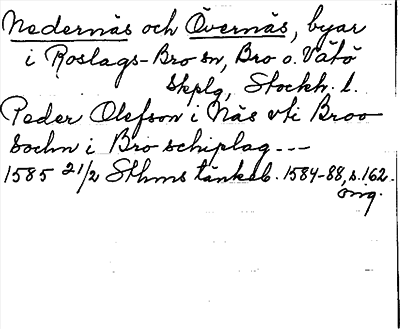 Nedernäs och Övernäs, byar
i Roslags-Bro sn, Bro o. Vätö
Skplg, Stockh. l.
Peder Olefson i Näs vti Broo
Sochn i Bro schiplag ---
1585 21/2 Sthms tänkeb. 1584-88, s. 162.
orig.